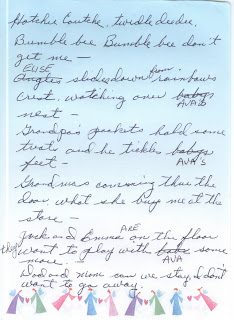 Hotchie Coutche, twidle deedee,
Bumble bee Bumble bee don't
get me —
ELISE from
slides down rainbows
crest, watching over babys AVA'S
nest —
Grandpa's pockets hold some
treats and he tickles babys
feet — AVA'S
Grandmas comming thru the
door, what she buy me at the
store — ARE
Jack and Emma on the floor
they want to play with baby some
more — AVA
Dad and mom can we stay, I don't
want to go away.